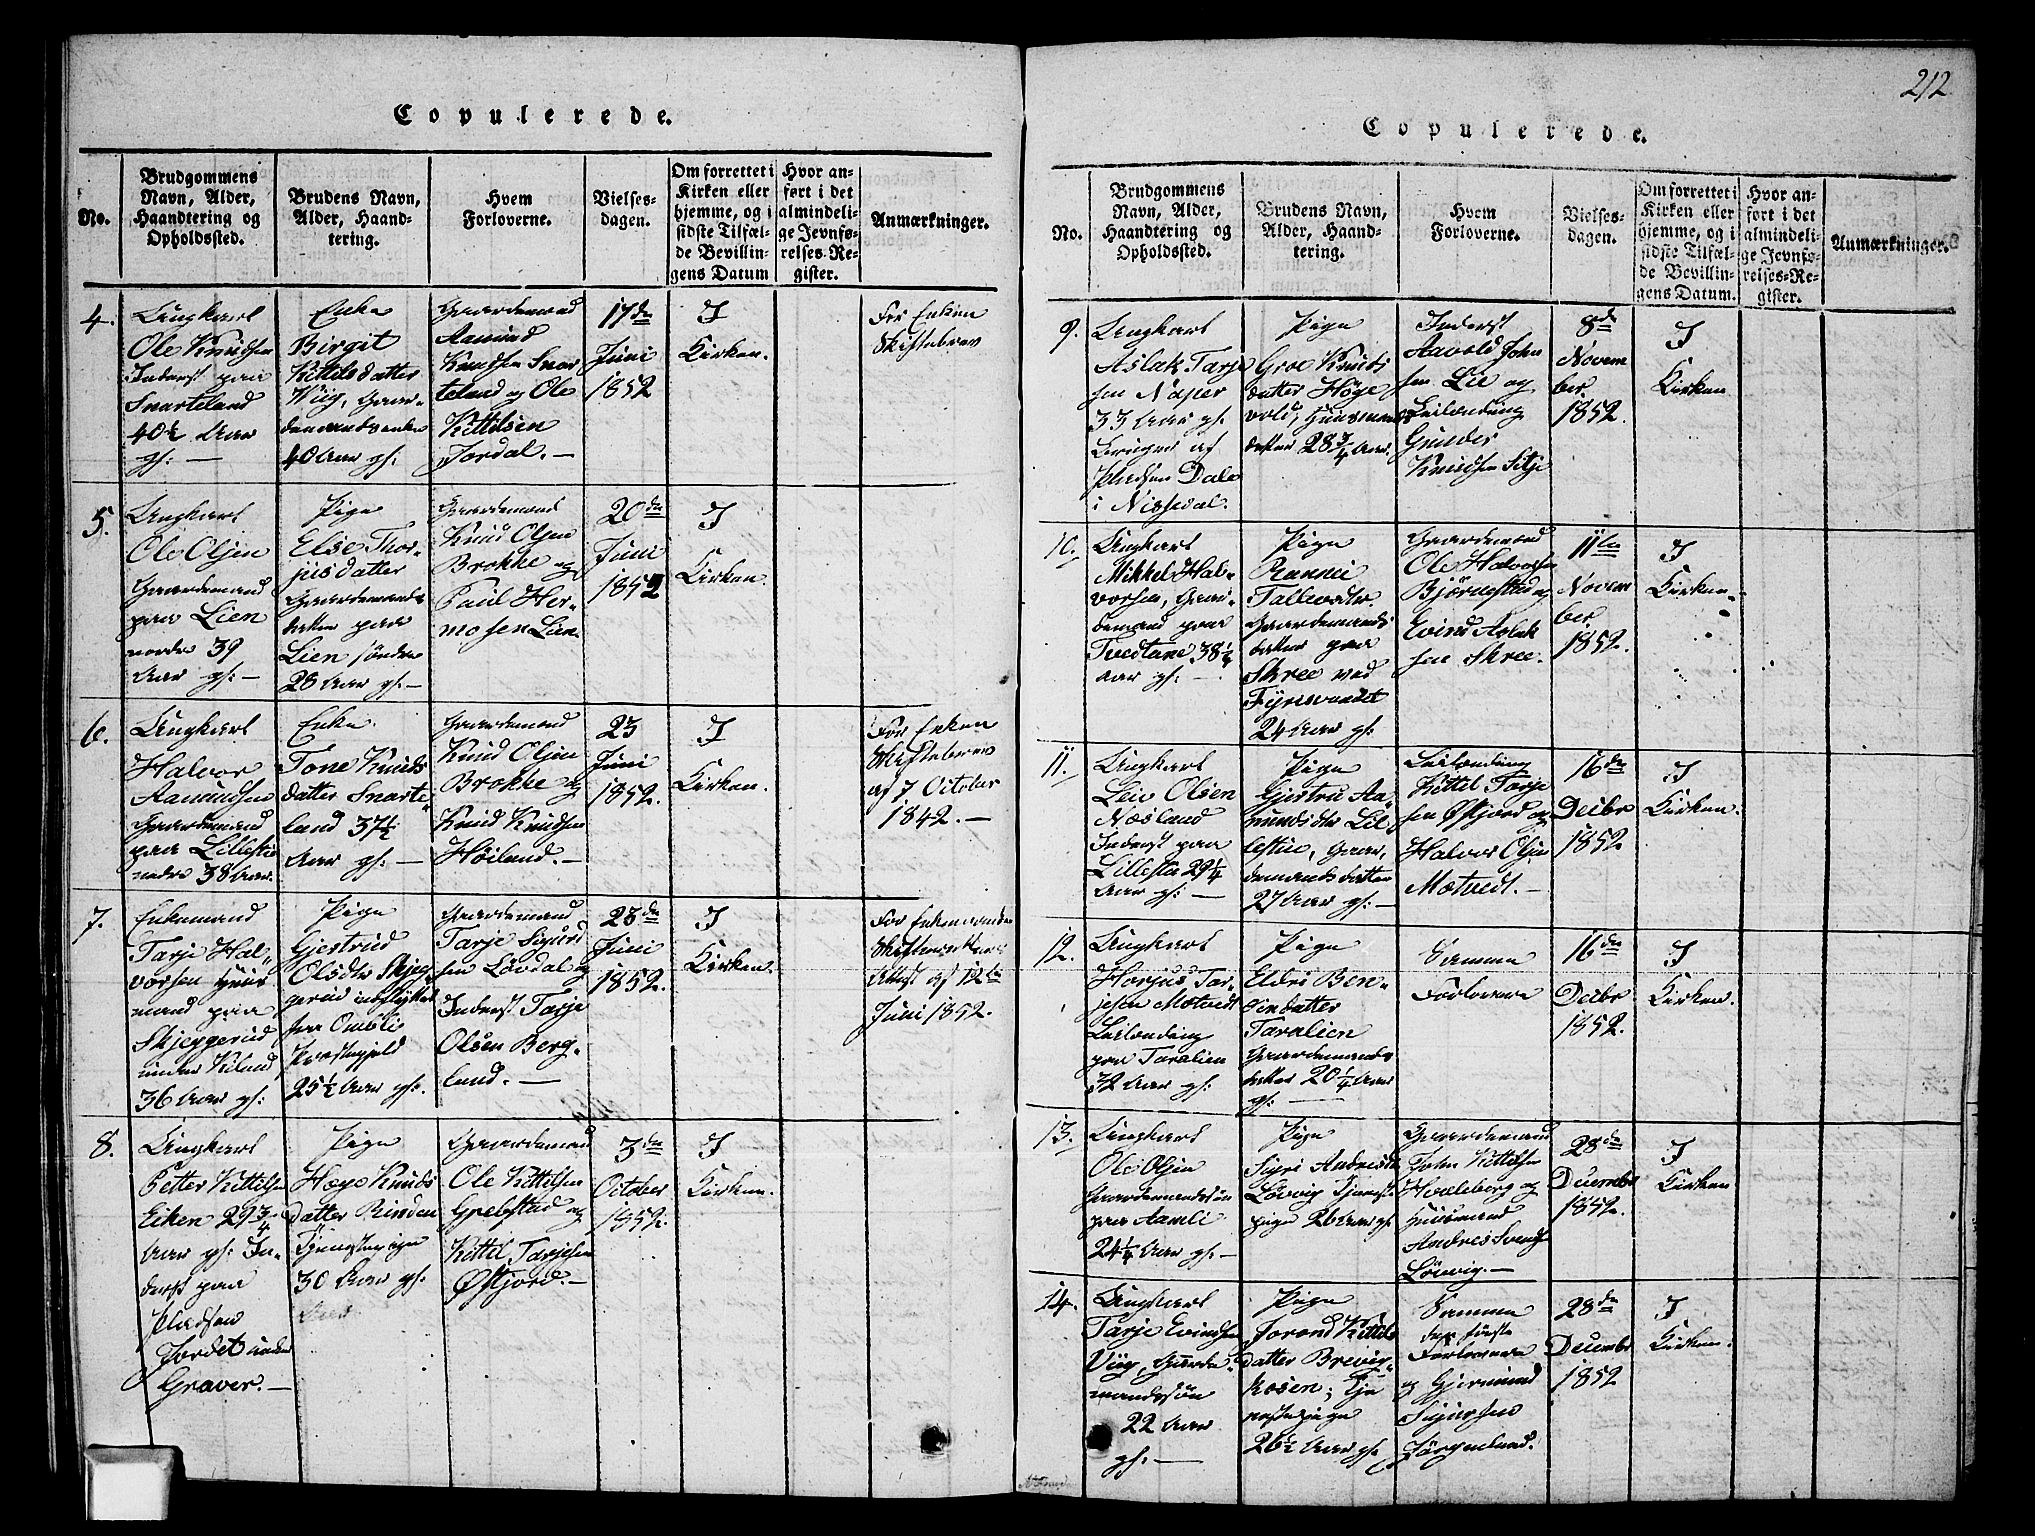 Copulerede.
No.
Brudgommens
Navn, Alder,
Haandtering og
Opholdssted.
Brudens Navn,
Alder, Haand-
tering.
Hvem
Forloverne.
Vielses-
dagen.
Om forrettet i
Kirken eller
hjemme, og i
sidste Tilfæl-
de Bevillin-
gens Datum
Hvor an-
ført i det
almindeli-
ge Jevnfø-
relses-Re-
gister.
Anmærkninger.
4.
Ungkarl
Ole Knudsen
Inderst paa
Snarteland
40½ Aar
gl: —
Enke
Birgit
Kittilsdatter
Wiig, Gaar-
demandsenke
40 Aar gl:
Gaardemand
Aanund
Knudsen Snar
teland og Ole
Kittilsen
Jordal. —
17de
Juni
1852
I
Kirken.
For Enken
Skiftebrev
5.
Ungkarl
Ole Olsen
Gaardemand
paa Lien
nordre 39
Aar gl: —
Pige
Else Thor-
jusdatter
Gaardemands
datter paa
Lien søndre
28 Aar gl: —
Gaardemand
Knud Olsen
Brokke og
Paul Her-
mosen Lien
20de
Juni
1852
I
Kirken.
6.
Ungkarl
Halvor
Aanundsen
Gaardemand
paa Lillestie
nedre 38 Aar.
Enke
Tone Knuds
datter Snarte-
land 37½
Aar gl: —
Gaardemand
Knud Olsen
Brokke og
Knud Knudsen
Høiland. —
23
Juni
1852.
I
Kirken.
For Enken
Skiftebrev
af 7 October
1842. —
7.
Enkemand
Tarje Hal-
vorsen Huus
mand paa
Skjeggerud
under Kiland,
36 Aar gl:
Pige
Gjestrud
Olsdtr Skjeg
gerud indflyttet
fra Omblie
Præstegjeld
25½ Aar gl:
Gaardemand
Tarje Sigurd
sen Løvdal og
Inderst Tarje
Olsen Berg-
land. —
23de
Juni
1852.
I
Kirken.
For Enkemanden
Attest af 12te
Juni 1852.
8.
Ungkarl
Petter Kittilsen
Eiken 29¾
Aar gl: In-
derst paa
Pladsen
Jordet under
Graver. —
Pige
Hæge Knuds
datter Rinden
Tjenestepige
30 Aar gl:
Gaardemand
Ole Kittilsen
Gpelstad og
Kittil Tarjesen
Østjord. —
3de
October
1852.
I
Kirken.
212
Copulerede.
No.
Brudgommens
Navn, Alder,
Haandtering og
Opholdssted.
Brudens Navn,
Alder, Haand-
tering.
Hvem
Forloverne.
Vielses-
dagen.
Om forrettet i
Kirken eller
hjemme, og i
sidste Tilfæl-
de Bevillin-
gens Datum.
Hvor an-
ført i det
almindeli-
ge Jevnfø-
relses-Re-
gister.
Anmærkninger.
9.
Ungkarl
Aslak Tarje
sen Naper
33 Aar gl:
Bruger af
Pladsen Dale
i Nissedal.
Pige
Groe Knuds
datter Høge
vold, Huusmands
datter 28¾ Aar.
Inderst
Aavold John
sen Lie og
Leilænding
Gunder
Knudsen Sitje
8de
Novem
ber
1852.
I
Kirken
10.
Ungkarl
Mikkel Hal-
vorsen, Gaar-
demand paa
Tvedtane 38¼
Aar gl: —
Pige
Rannei
Tallevsdtr
Gaardemands
datter paa
Skree ved
Fyresvandet
24 Aar gl:
Gaardemand
Ole Halvorsen
Bjørnestad og
Evind Aslak
sen Skree.
11te
Novem
ber
1852.
I
Kirken
11.
Ungkarl
Leiv Olsen
Næsland
Inderst paa
Lillestie 29¼
Aar gl: —
Pige
Gjestru Aa-
nundsdtr Lil-
lestie, Gaar-
demandsdatter
27 Aar gl: —
Leilænding
Kittel Tarje
sen Østjord og
Halvor Olsen
Mætvedt. —
16de
Decbr
1852
I
Kirken.
12.
Ungkarl
Horjus Tar-
jesen Mætvedt
Leilænding
paa Taralien
32 Aar gl:
Pige
Eldri Ben-
dixdatter
Taralien
Gaardemands
datter 20¼ Aar
gl: —
Samme
Forlovere
16de
Decbr
1852.
I
Kirken.
13.
Ungkarl
Ole Olsen
Gaardemandssøn
paa Aamli
24¼ Aar gl: —
Pige
Sigri Andresdtr
Løvvig Tjeneste
pige 26 Aar gl:
Gaardemand
John Kittilsen
Hvaleberg og
Huusmand
Andres Svends
Løuvig. —
28de
Decembr
1852.
I
Kirken
14.
Ungkarl
Tarje Evindsen
Viig, Gaarde-
mandssøn
22 Aar
gl: —
Pige
Jorond Kittils
datter Brevig-
kosen, Tje
nestepige
26½ Aar gl:
Samme
den første
Forlovere
og Gjermund
Sigursen
Jørgenlund.
28de
Decembr
1852
I
Kirken.